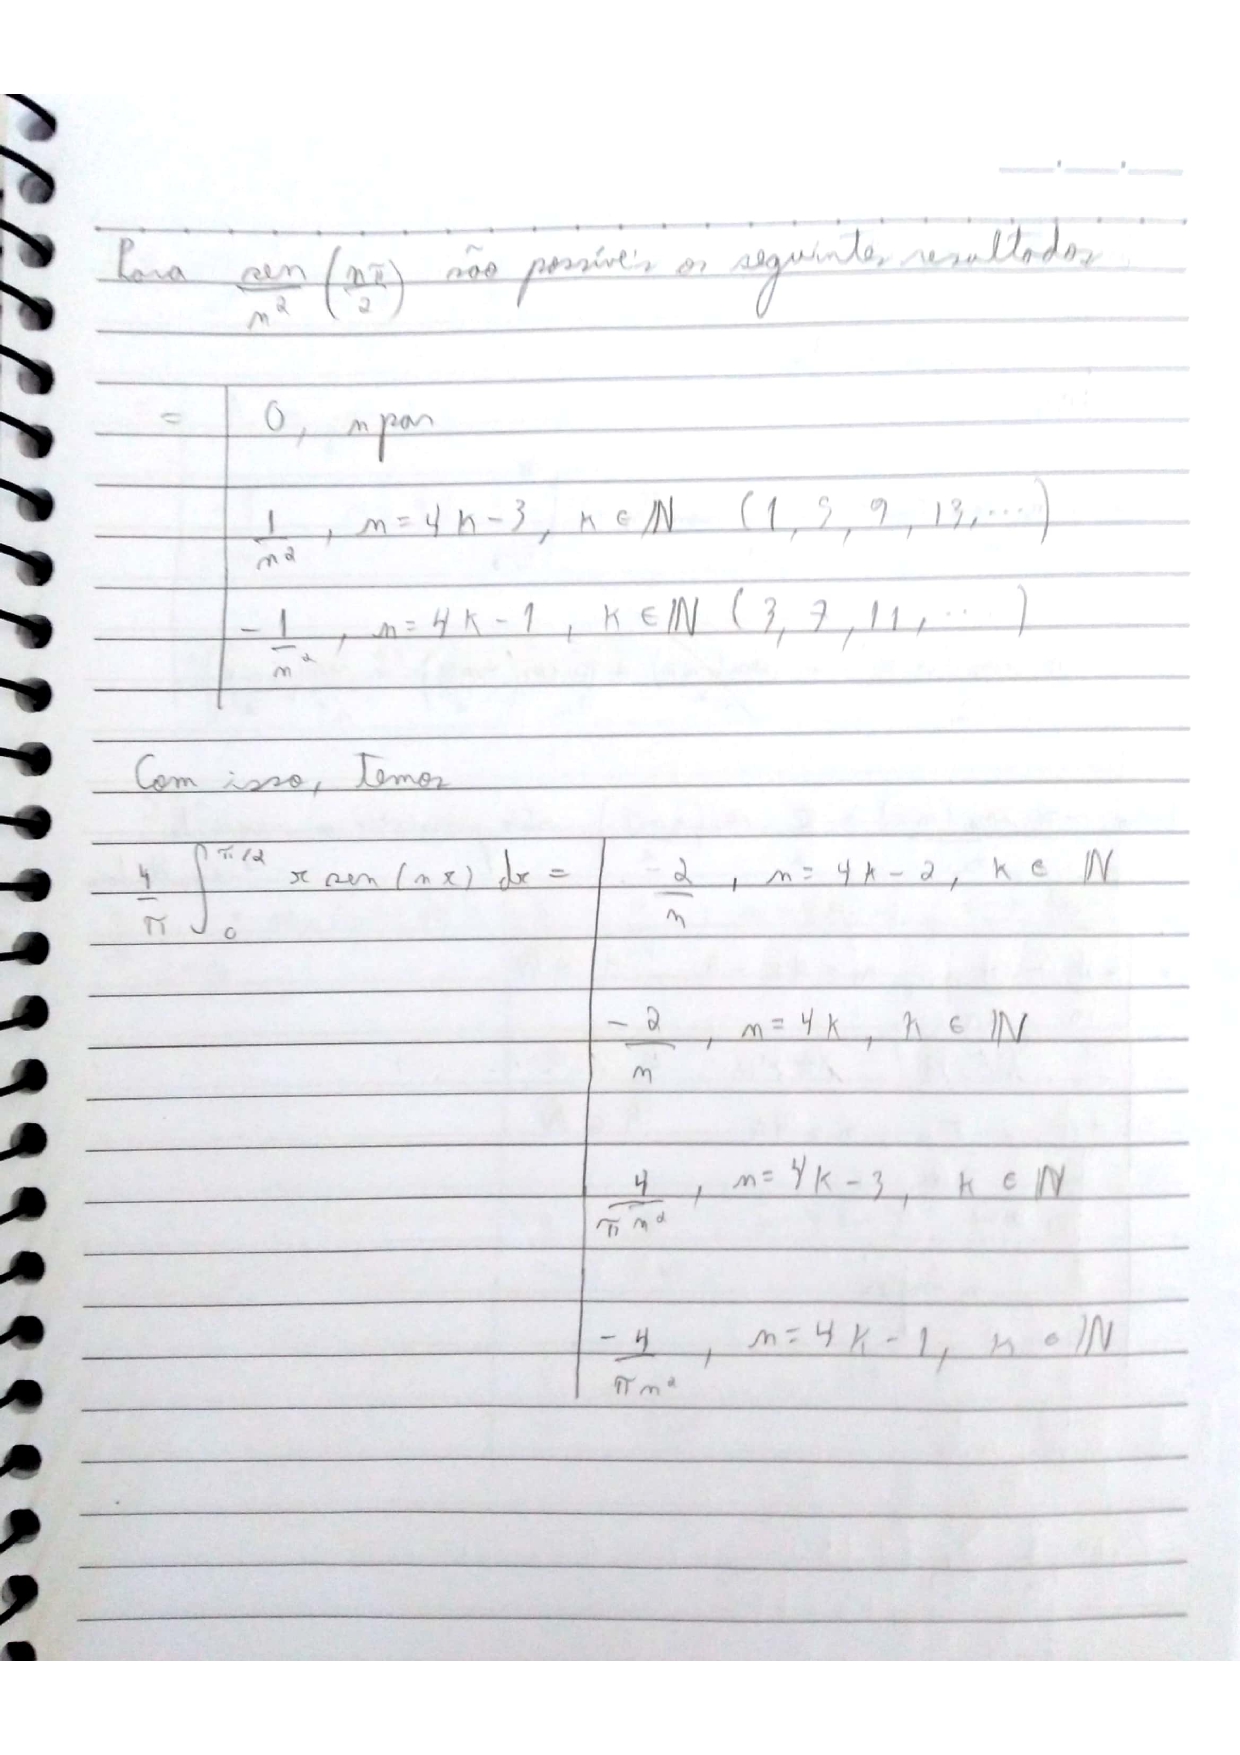 Para sen/n² (nπ/2) são possíveis os seguintes resultados
= | 0, n par
1/n², n = 4k - 3, k ∈ ℕ (1, 5, 9, 13, ....)
-1/n², n = 4k - 1, k ∈ ℕ (3, 7, 11, ...)
Com isso, temos
4/π ∫₀^(π/2) x sen(nx) dx = | 2/n, n = 4k - 2, k ∈ ℕ
-2/n, n = 4k, k ∈ ℕ
4/πn², n = 4k - 3, k ∈ ℕ
-4/πn², n = 4k - 1, k ∈ ℕ